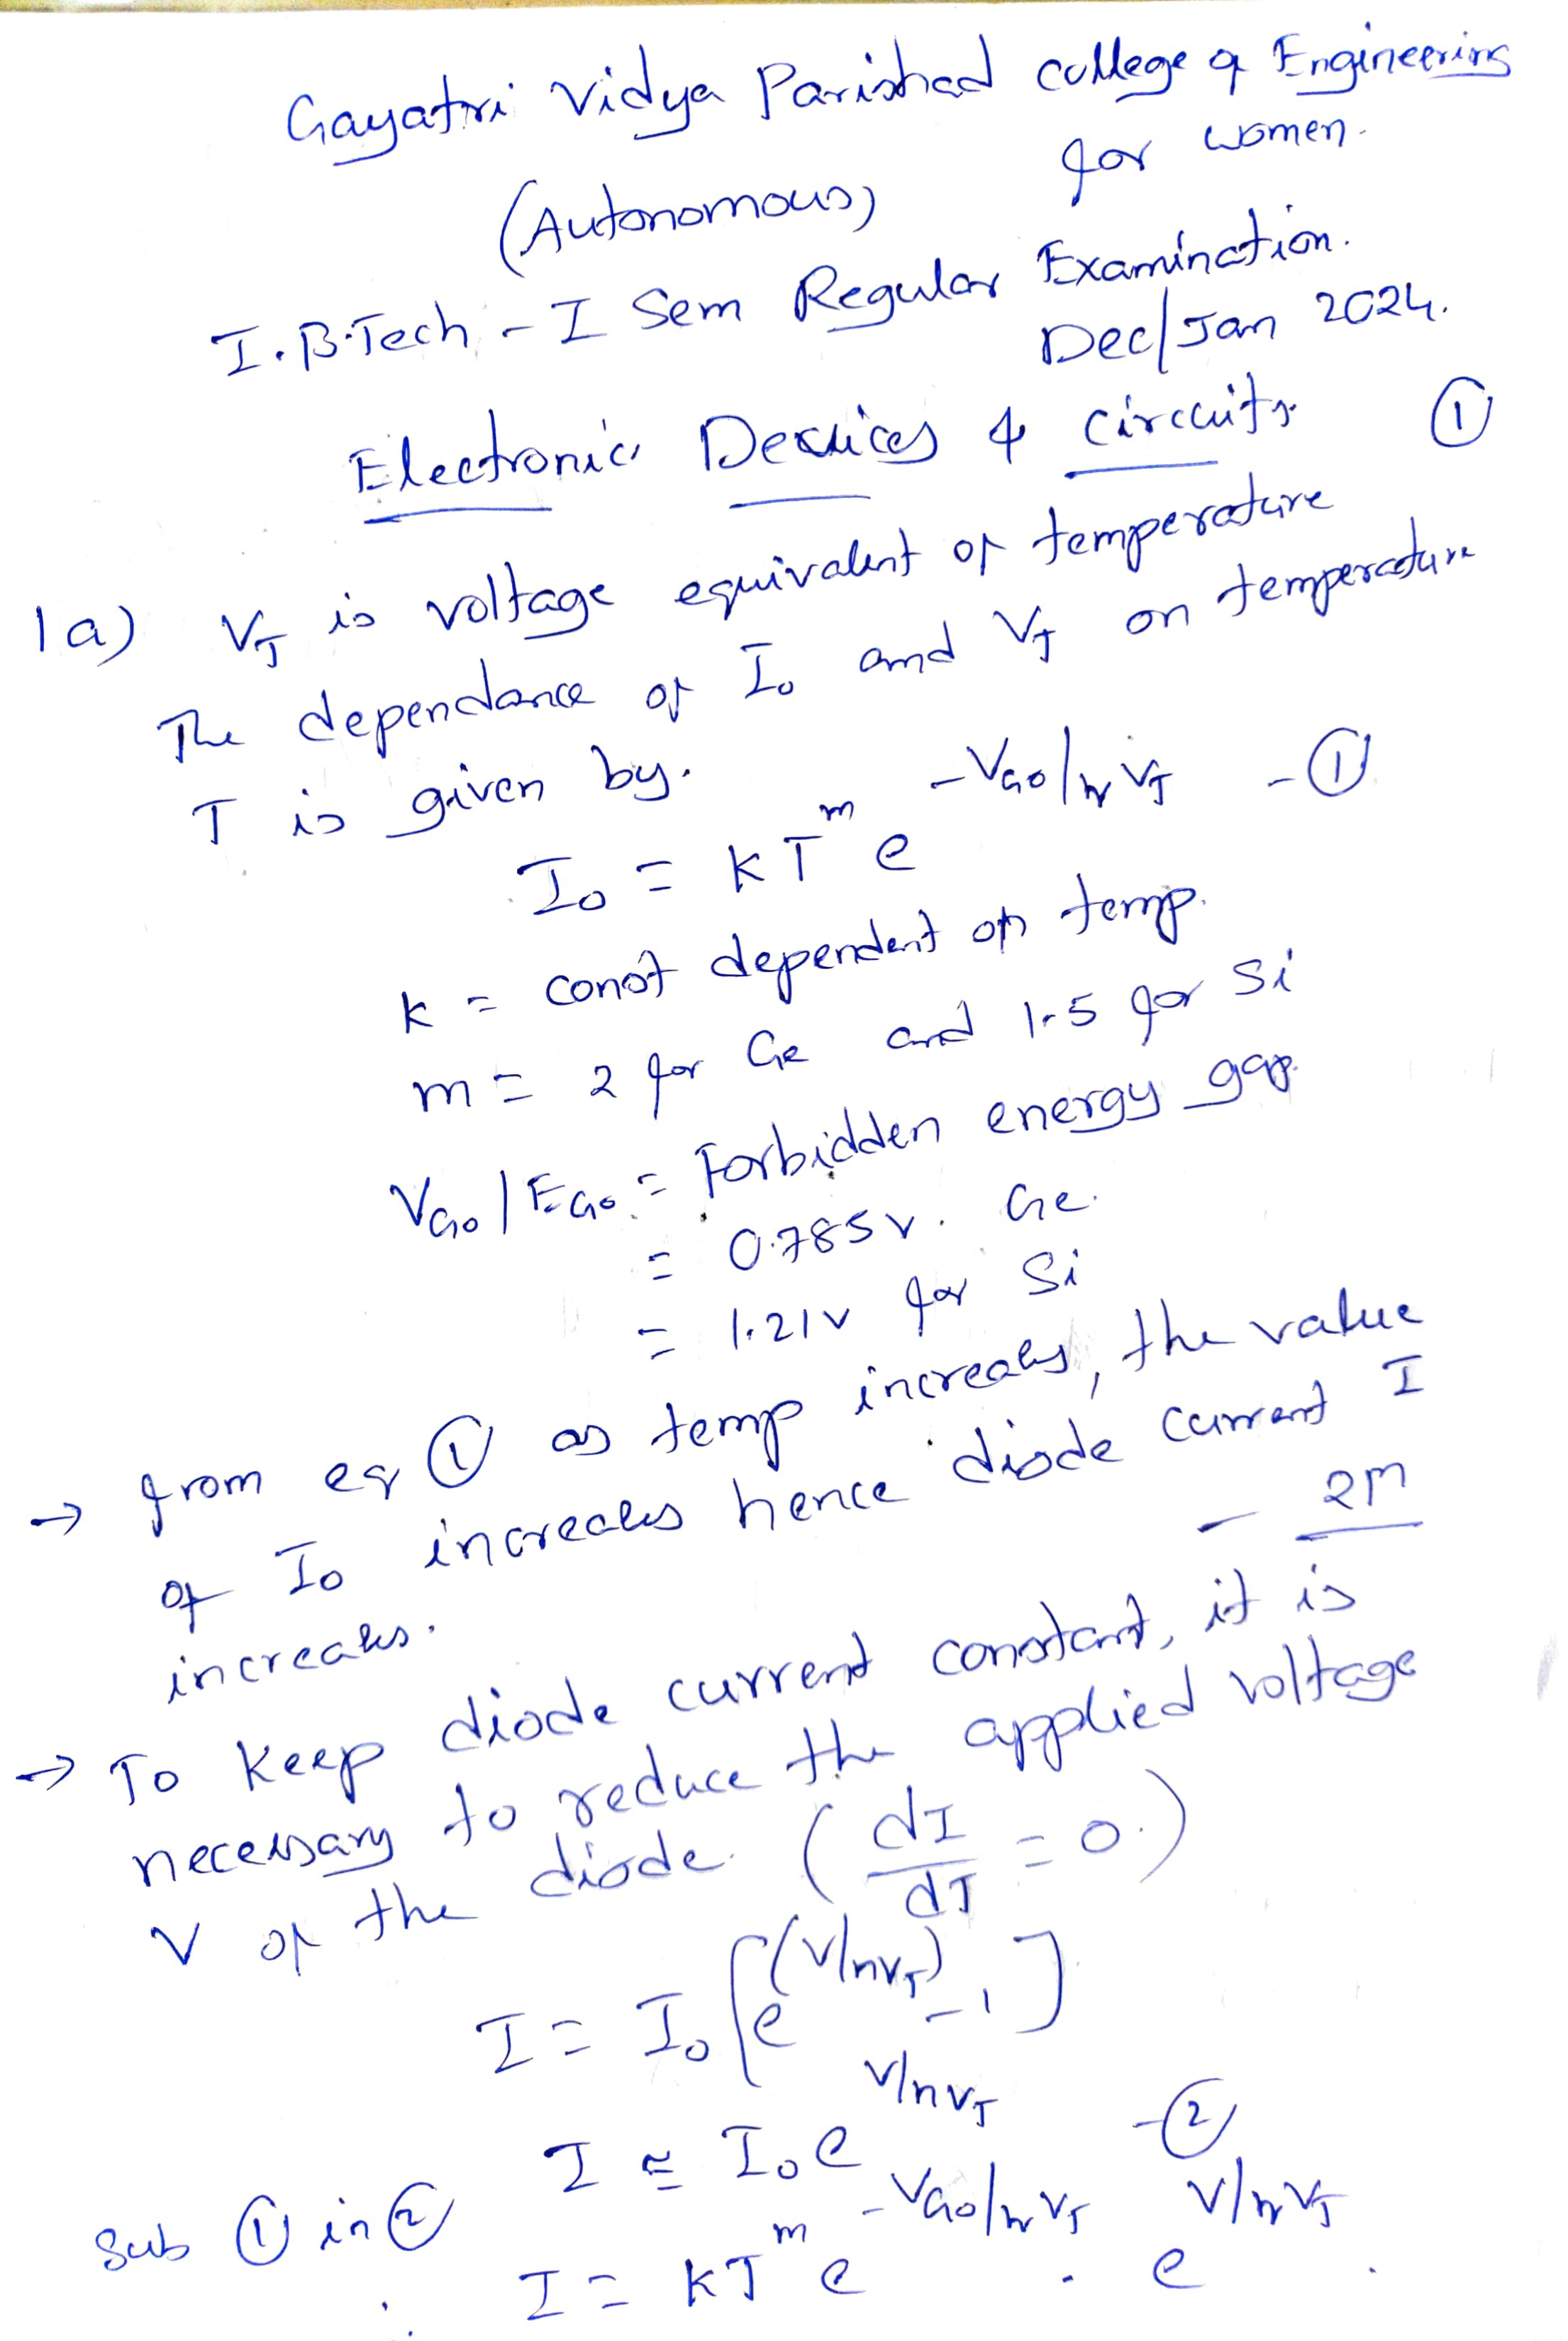 Gayatri Vidya Parishad college of Engineering
for women.
(Autonomous)
I. B.Tech - I Sem Regular Examination.
Dec/Jan 2024.
Electronic Devices & circuits. ①
1a) V_T is voltage equivalent of temperature
The dependance of I₀ and V_T on temperature
T is given by.
I₀ = K T^m e^(-V_G0/ηV_T) - ①
k = const dependent on temp.
m = 2 for Ge and 1.5 for Si
V_G0 / E_G0 = Forbidden energy gap.
= 0.785v. Ge.
= 1.21v for Si
→ from eq ① as temp increases, the value
of I₀ increases hence diode current I
increases. - 2M
→ To keep diode current constant, it is
necessary to reduce the applied voltage
V of the diode. (dI/dT = 0.)
I = I₀ [e^(V/ηV_T) - 1]
I ≅ I₀ e^(V/ηV_T) - ②
Sub ① in ②
∴ I = KT^m e^(-V_G0/ηV_T) . e^(V/ηV_T) .